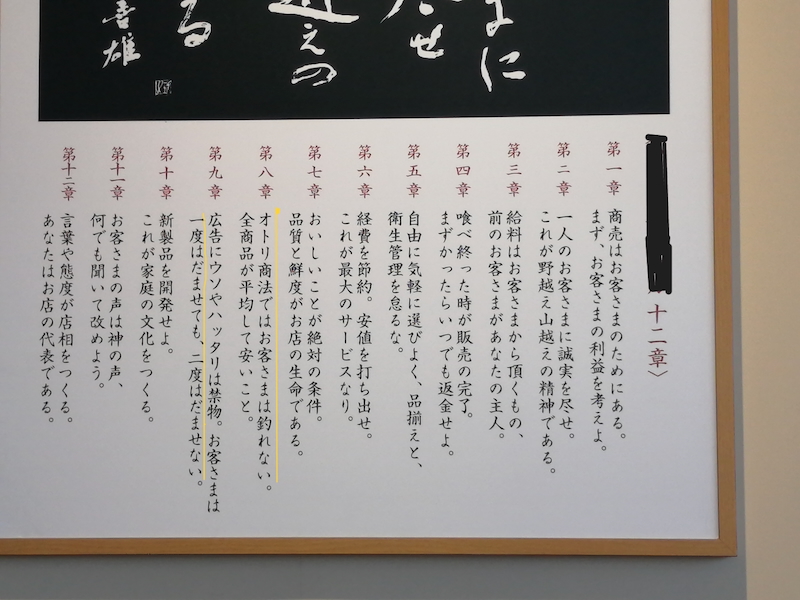 まに
尽せ
越えの
る
喜雄
十二章〉
第一章 商売はお客さまのためにある。
まず、お客さまの利益を考えよ。
第二章 一人のお客さまに誠実を尽せ。
これが野越え山越えの精神である。
第三章 給料はお客さまから頂くもの、
前のお客さまがあなたの主人。
第四章 喰べ終った時が販売の完了。
まずかったらいつでも返金せよ。
第五章 自由に気軽に選びよく、品揃えと、
衛生管理を怠るな。
第六章 経費を節約。安値を打ち出せ。
これが最大のサービスなり。
第七章 おいしいことが絶対の条件。
品質と鮮度がお店の生命である。
第八章 オトリ商法ではお客さまは釣れない。
全商品が平均して安いこと。
第九章 広告にウソやハッタリは禁物。お客さまは
一度はだませても、二度はだませない。
第十章 新製品を開発せよ。
これが家庭の文化をつくる。
第十一章 お客さまの声は神の声、
何でも聞いて改めよう。
第十二章 言葉や態度が店相をつくる。
あなたはお店の代表である。